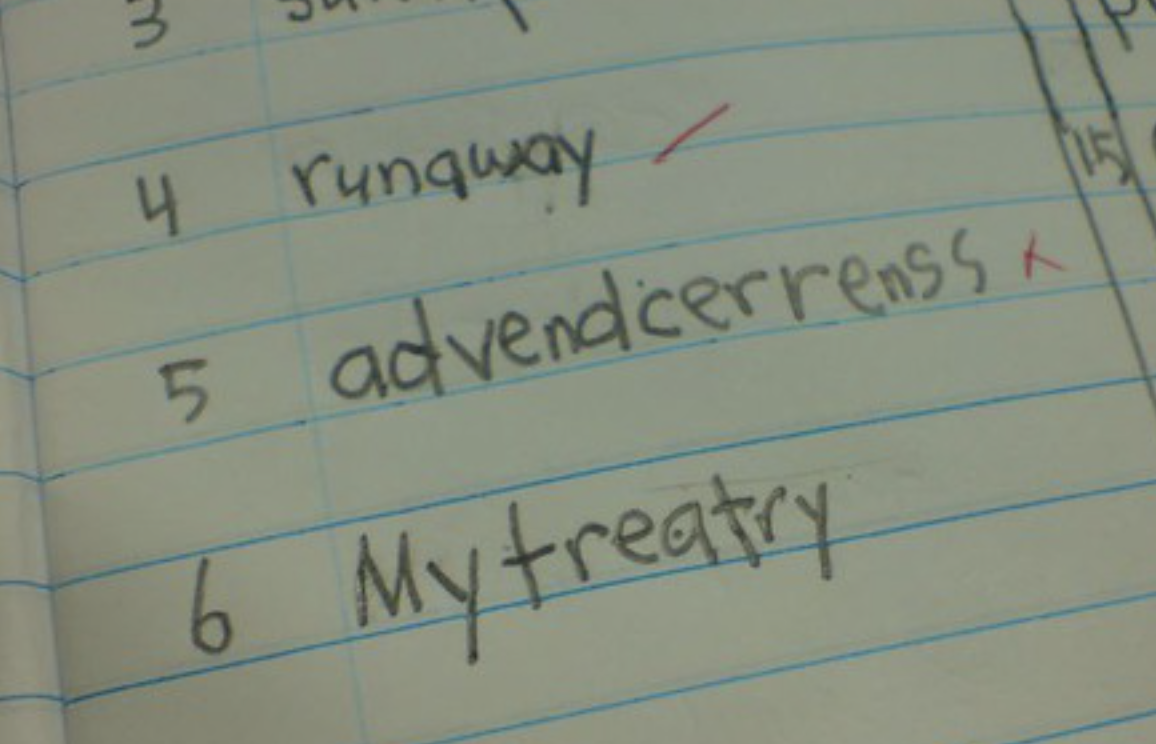 3
4 runaway
15
5 advendcerrenss
6 Mytreatry